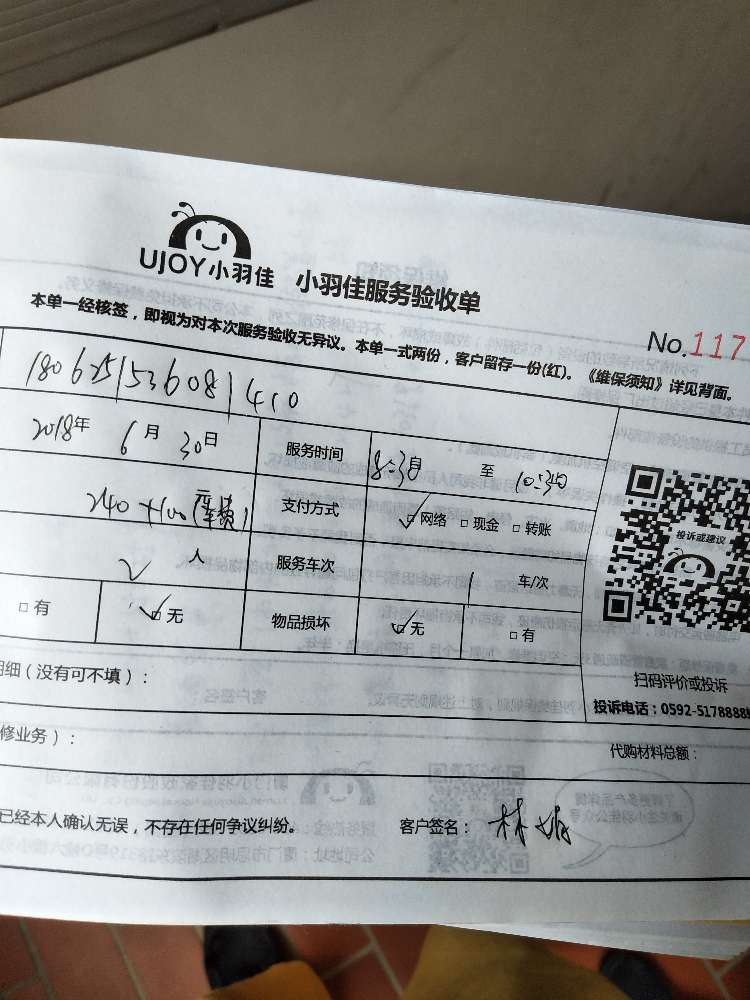 UJOY小羽佳 小羽佳服务验收单
No.117
本单一经核签，即视为对本次服务验收无异议。本单一式两份，客户留存一份(红)。《维保须知》详见背面。
180625153608410
2018年 6月 30日 服务时间 8:30 至 10:30
240 +100 支付方式 网络 现金 转账
人 服务车次 1 车/次
有 无 物品损坏 无 有
投诉或建议
扫码评价或投诉
明细（没有可不填）：
投诉电话：0592-5178888
修业务）：
代购材料总额：
已经本人确认无误，不存在任何争议纠纷。 客户签名： 林